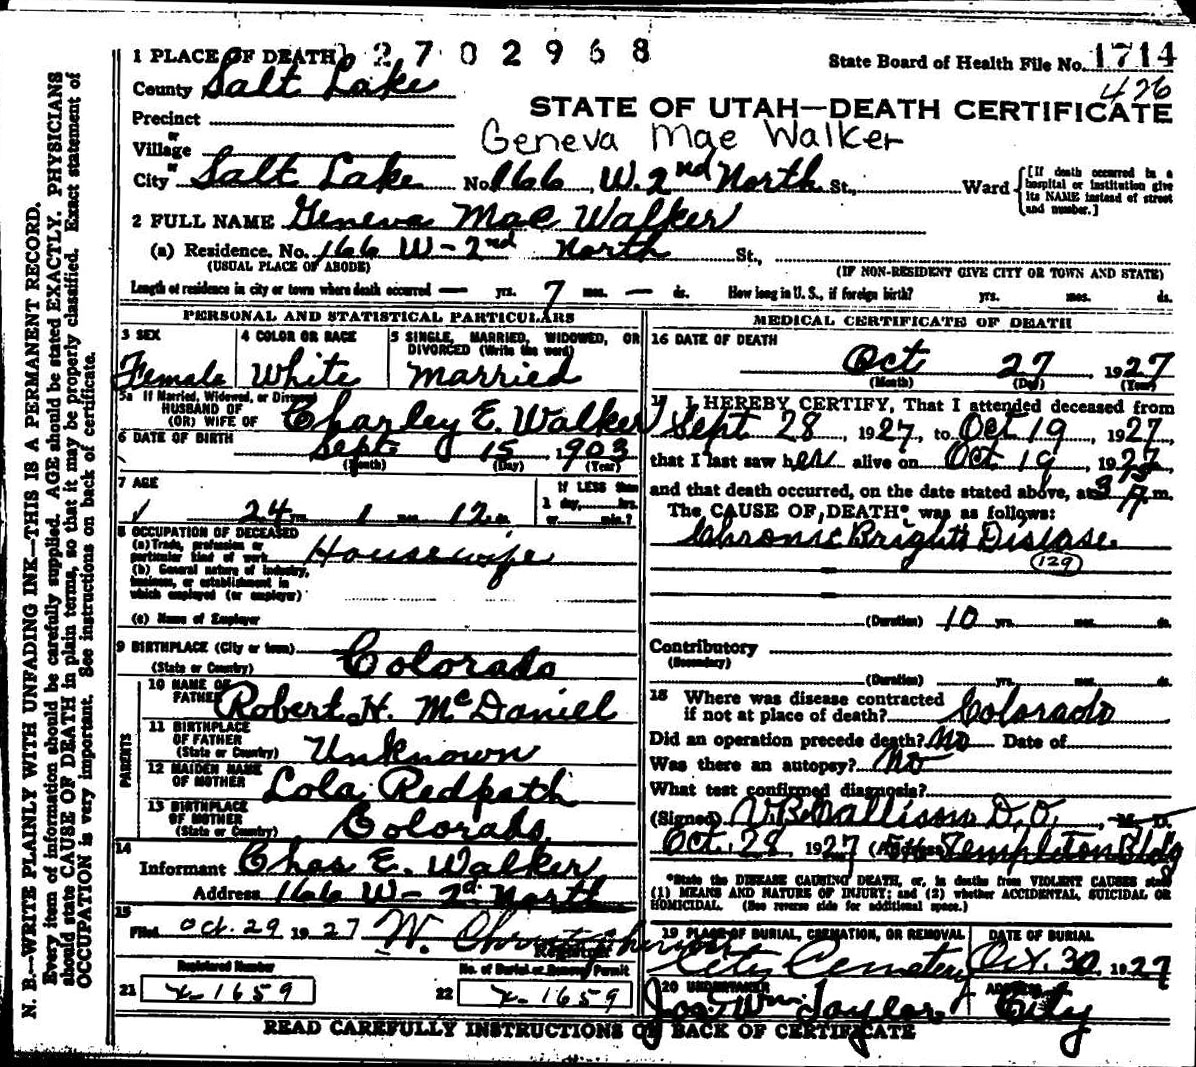 1 PLACE OF DEATH 2702968 State Board of Health File No. 1714
County Salt Lake 426
STATE OF UTAH—DEATH CERTIFICATE
Precinct
or
Village Geneva Mae Walker
or
City Salt Lake No. 166 W. 2nd North St., Ward [If death occurred in a hospital or institution give its NAME instead of street and number.]
2 FULL NAME Geneva Mae Walker
(a) Residence. No. 166 W-2nd North St.,
(USUAL PLACE OF ABODE) (IF NON-RESIDENT GIVE CITY OR TOWN AND STATE)
Length of residence in city or town where death occurred — yrs. 7 mos. — ds. How long in U. S., if foreign birth? yrs. mos. ds.
PERSONAL AND STATISTICAL PARTICULARS
3 SEX 4 COLOR OR RACE 5 SINGLE, MARRIED, WIDOWED, OR DIVORCED (Write the word)
Female White Married
5a If Married, Widowed, or Divorced
HUSBAND OF
(OR) WIFE OF Charley E. Walker
6 DATE OF BIRTH Sept 15 1903
(Month) (Day) (Year)
7 AGE If LESS than
1 day, hrs.
24 yrs. 1 mos. 12 ds. or min.?
8 OCCUPATION OF DECEASED
(a) Trade, profession or
particular kind of work Housewife
(b) General nature of industry,
business, or establishment in
which employed (or employer)
(c) Name of Employer
9 BIRTHPLACE (City or town)
(State or Country) Colorado
PARENTS
10 NAME OF
FATHER Robert H. McDaniel
11 BIRTHPLACE
OF FATHER
(State or Country) Unknown
12 MAIDEN NAME
OF MOTHER Lola Redpath
13 BIRTHPLACE
OF MOTHER
(State or Country) Colorado
14
Informant Chas E. Walker
Address 166 W-2d North
15
Filed Oct. 29 1927 W.
Registrar
Registered Number No. of Burial or Removal Permit
21 X-1659 22 X-1659
MEDICAL CERTIFICATE OF DEATH
16 DATE OF DEATH
Oct 27 1927
(Month) (Day) (Year)
17 I HEREBY CERTIFY, That I attended deceased from
Sept 28, 1927, to Oct 19, 1927
that I last saw her alive on Oct 19, 1927
and that death occurred, on the date stated above, at 3 A. m.
The CAUSE OF DEATH* was as follows:
Chronic Brights Disease
129
(Duration) 10 yrs. mos. ds.
Contributory
(Secondary)
(Duration) yrs. mos. ds.
18 Where was disease contracted
if not at place of death? Colorado
Did an operation precede death? No Date of
Was there an autopsy? No
What test confirmed diagnosis?
(Signed) D.O., M. D.
Oct. 28, 1927 (Address) Templeton Bldg
*State the DISEASE CAUSING DEATH, or, in deaths from VIOLENT CAUSES state
(1) MEANS AND NATURE OF INJURY; and (2) whether ACCIDENTAL, SUICIDAL OR
HOMICIDAL. (See reverse side for additional space.)
19 PLACE OF BURIAL, CREMATION, OR REMOVAL DATE OF BURIAL
City Cemetery Oct. 30, 1927
20 UNDERTAKER ADDRESS
Jos. Wm. Taylor City
READ CAREFULLY INSTRUCTIONS ON BACK OF CERTIFICATE
N. B.—WRITE PLAINLY WITH UNFADING INK—THIS IS A PERMANENT RECORD.
Every item of information should be carefully supplied. AGE should be stated EXACTLY. PHYSICIANS
should state CAUSE OF DEATH in plain terms, so that it may be properly classified. Exact statement of
OCCUPATION is very important. See instructions on back of certificate.